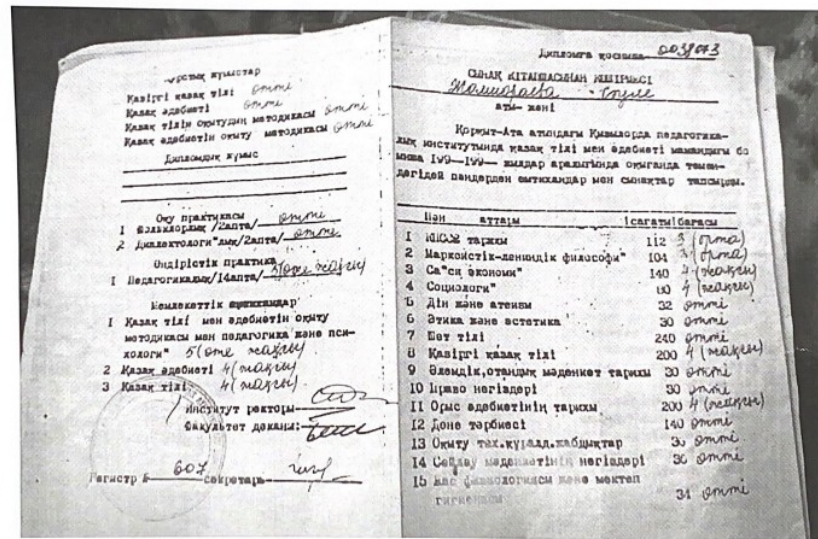 Курстық жұмыстар
Қазіргі қазақ тілі өтті
Қазақ әдебиеті өтті
Қазақ тілін оқытудың методикасы өтті
Қазақ әдебиетін оқыту методикасы өтті
Дипломдық жұмыс
Оқу практикасы
1 Фольклорлық /2апта/ өтті
2 Диалектологи"лық/2апта/ өтті
Өндірістік практика
1 Педагогикалық/14апта/ 5(өте жақсы)
Мемлекеттік емтихандар
1 Қазақ тілі мен әдебиетін оқыту
методикасы мен педагогика және пси-
хологи" 5(өте жақсы)
2 Қазақ әдебиеті 4(жақсы)
3 Қазақ тілі 4(жақсы)
Институт ректоры
Факультет деканы:
Регистр № 607 секретарь
Дипломға қосымша
СЫНАҚ КІТАПШАСЫНАН КӨШІРМЕСІ
аты- жөні
Қорқыт-Ата атындағы Қызылорда педагогика-
лық институтында қазақ тілі мен әдебиеті мамандығы бо
йынша 199—199— жылдар аралығында оқығанда төмен-
дегідей пәндерден емтихандар мен сынақтар тапсырды.
Пән аттары сағаты бағасы
1 КПСС тарихы 112 3 (орта)
2 Марксистік-лениндік философи" 104 3 (орта)
3 Са"си экономи" 140 4 (жақсы)
4 Социологи" 80 4 (жақсы)
5 Дін және атеизм 32 өтті
6 Этика және эстетика 30 өтті
7 Шет тілі 240 өтті
8 Қазіргі қазақ тілі 200 4 (жақсы)
9 Әлемдік,отандық мәдениет тарихы 30 өтті
10 Право негіздері 30 өтті
11 Орыс әдебиетінің тарихы 200 4 (жақсы)
12 Дене тәрбиесі 140 өтті
13 Оқыту тех.құралд.жабдықтар 30 өтті
14 Сөйлеу мәдениетінің негіздері 30 өтті
15 Жас физиологиясы және мектеп
гигиенасы 34 өтті